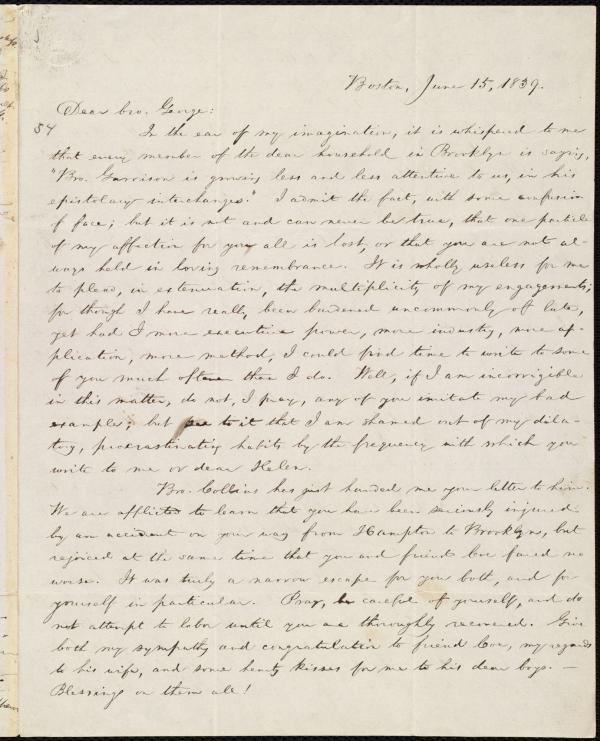 Boston, June 15, 1839.
Dear bro. George:
54
In the ear of my imagination, it is whispered to me
that every member of the dear household in Brooklyn is saying,
"Bro. Garrison is growing less and less attentive to us, in his
epistolary interchanges." I admit the fact, with some confusion
of face; but it is not and can never be true, that one particle
of my affection for you all is lost, or that you are not al-
ways held in loving remembrance. It is wholly useless for me
to plead, in extenuation, the multiplicity of my engagements;
for though I have really been burdened uncommonly of late,
yet had I more executive power, more industry, more ap-
plication, more method, I could find time to write to some
of you much oftener than I do. Well, if I am incorrigible
in this matter, do not, I pray, any of you imitate my bad
example; but see to it that I am shamed out of my dila-
tory, procrastinating habits by the frequency with which you
write to me or dear Helen.
Bro. Collins has just handed me your letter to him.
We are afflicted to learn that you have been seriously injured
by an accident on your way from Hampton to Brooklyn, but
rejoiced at the same time that you and friend Coe fared no
worse. It was truly a narrow escape for you both, and for
yourself in particular. Pray, be careful of yourself, and do
not attempt to labor until you are thoroughly recovered. Give
both my sympathy and congratulation to friend Coe, my regards
to his wife, and some hearty kisses for me to his dear boys. —
Blessings on them all!